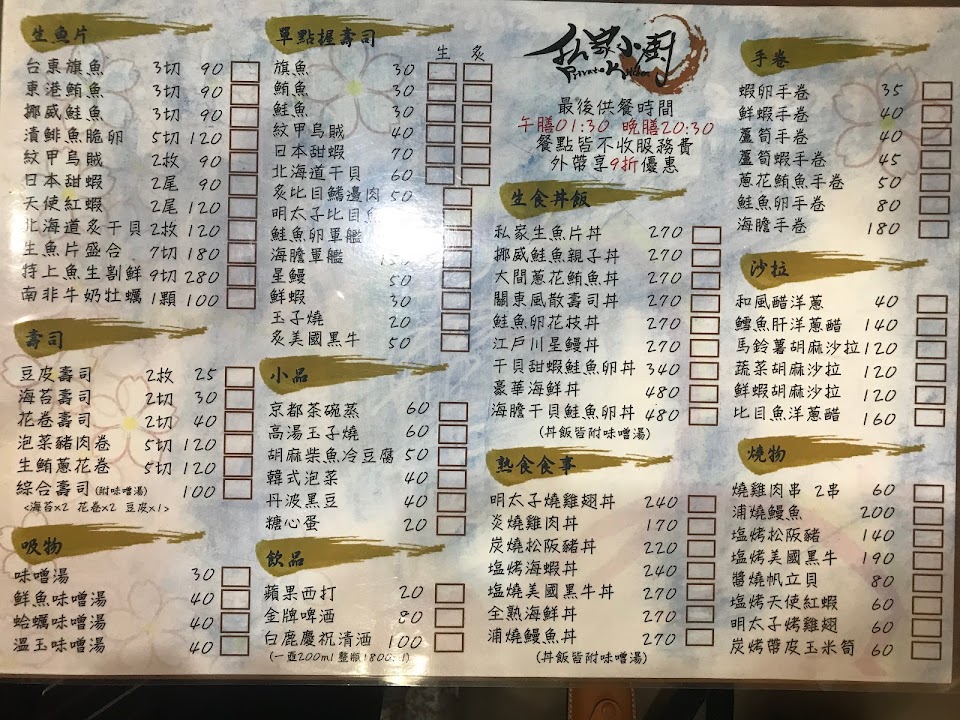 生魚片
台東旗魚 3切 90
東港鮪魚 3切 90
挪威鮭魚 3切 90
漬鯡魚脆卵 5切 120
紋甲烏賊 2枚 90
日本甜蝦 2尾 90
天使紅蝦 2尾 120
北海道炙干貝 2枚 120
生魚片盛合 7切 180
特上魚生割鮮 9切 280
南非牛奶牡蠣 1顆 100
壽司
豆皮壽司 2枚 25
海苔壽司 2切 30
花卷壽司 2切 40
泡菜豬肉卷 5切 120
生鮪蔥花卷 5切 120
綜合壽司(附味噌湯) 100
<海苔x2 花卷x2 豆皮x1>
吸物
味噌湯 30
鮮魚味噌湯 40
蛤蠣味噌湯 40
溫玉味噌湯 40
單點握壽司
生 炙
旗魚 30
鮪魚 30
鮭魚 30
紋甲烏賊 40
日本甜蝦 70
北海道干貝 60
炙比目鰭邊肉 50
明太子比目魚
鮭魚卵軍艦
海膽軍艦
星鰻 50
鮮蝦 30
玉子燒 20
炙美國黑牛 50
小品
京都茶碗蒸 60
高湯玉子燒 60
胡麻柴魚冷豆腐 50
韓式泡菜 40
丹波黑豆 40
糖心蛋 20
飲品
蘋果西打 20
金牌啤酒 80
白鹿慶祝清酒 100
(一壺200ml 整瓶1800ml)
私家小廚
Private Kitchen
最後供餐時間
午膳01:30 晚膳20:30
餐點皆不收服務費
外帶享9折優惠
生食丼飯
私家生魚片丼 270
挪威鮭魚親子丼 270
大間蔥花鮪魚丼 270
關東風散壽司丼 270
鮭魚卵花枝丼 270
江戶川星鰻丼 270
干貝甜蝦鮭魚卵丼 340
豪華海鮮丼 480
海膽干貝鮭魚卵丼 480
(丼飯皆附味噌湯)
熟食食事
明太子燒雞翅丼 240
炎燒雞肉丼 170
炭燒松阪豬丼 220
塩烤海蝦丼 240
塩燒美國黑牛丼 270
全熟海鮮丼 270
浦燒鰻魚丼 270
(丼飯皆附味噌湯)
手卷
蝦卵手卷 35
鮮蝦手卷 40
蘆筍手卷 40
蘆筍蝦手卷 45
蔥花鮪魚手卷 50
鮭魚卵手卷 80
海膽手卷 180
沙拉
和風醋洋蔥 40
鱈魚肝洋蔥醋 140
馬鈴薯胡麻沙拉 120
蔬菜胡麻沙拉 120
鮮蝦胡麻沙拉 120
比目魚洋蔥醋 160
燒物
燒雞肉串 2串 60
浦燒鰻魚 200
塩烤松阪豬 140
塩烤美國黑牛 190
醬燒帆立貝 80
塩烤天使紅蝦 60
明太子烤雞翅 60
炭烤帶皮玉米筍 60